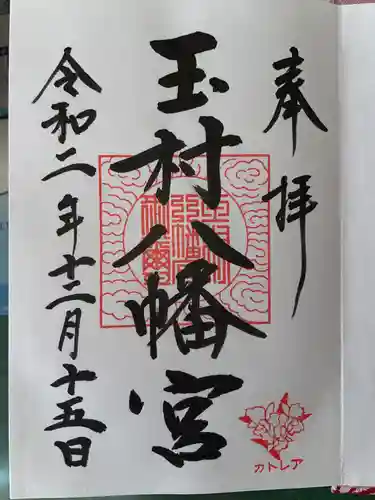 奉拝
玉村八幡宮
令和二年十二月十五日
カトレア